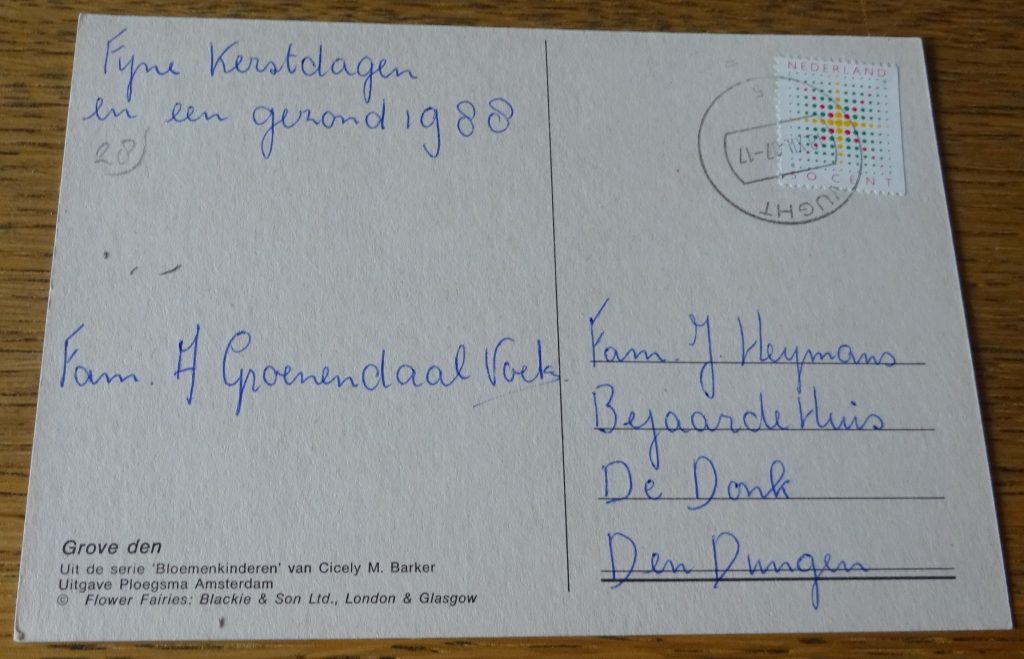 Fyne Kerstdagen
en een gezond 1988
28)
Fam. A Groenendaal Voets
Grove den
Uit de serie 'Bloemenkinderen' van Cicely M. Barker
Uitgave Ploegsma Amsterdam
© Flower Fairies: Blackie & Son Ltd., London & Glasgow
NEDERLAND
50 CENT
VUGHT
Fam. J. Heymans
Bejaarde Huis
De Donk
Den Dungen